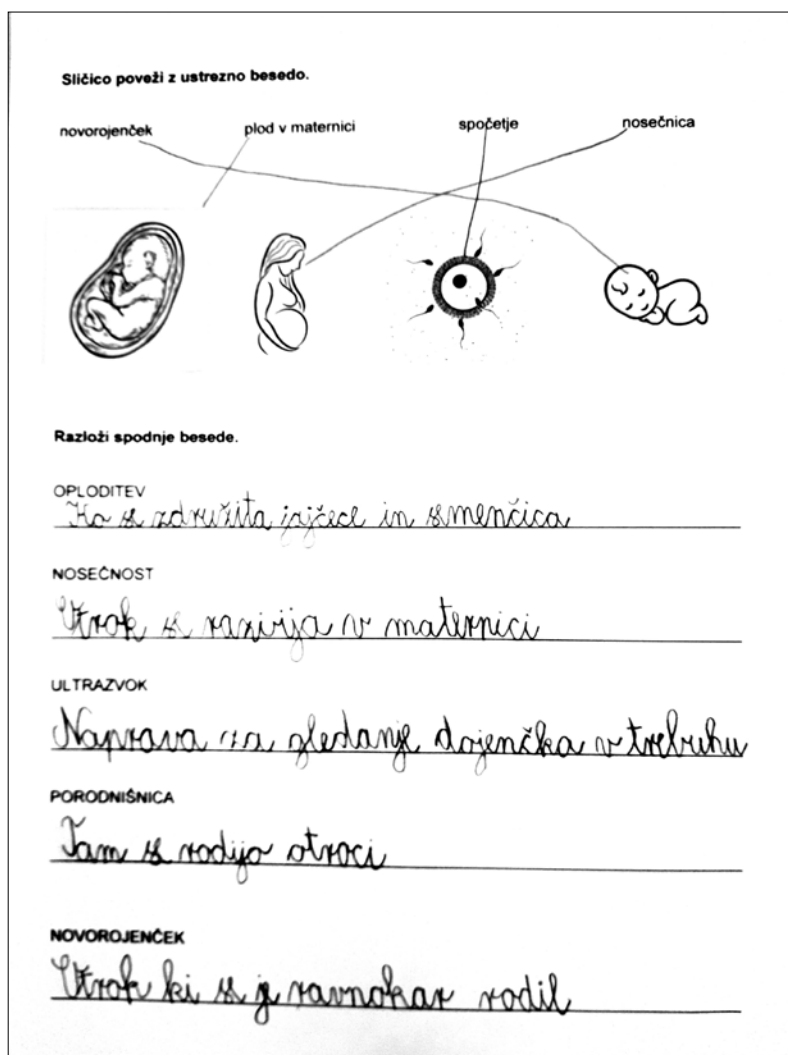 Sličico poveži z ustrezno besedo.
novorojenček plod v maternici spočetje nosečnica
Razloži spodnje besede.
OPLODITEV
Ko se združita jajčece in smenčica
NOSEČNOST
Otrok se razvija v maternici
ULTRAZVOK
Naprava za gledanje dojenčka v trebuhu
PORODNIŠNICA
Tam se rodijo otroci
NOVOROJENČEK
Otrok ki se je ravnokar rodil